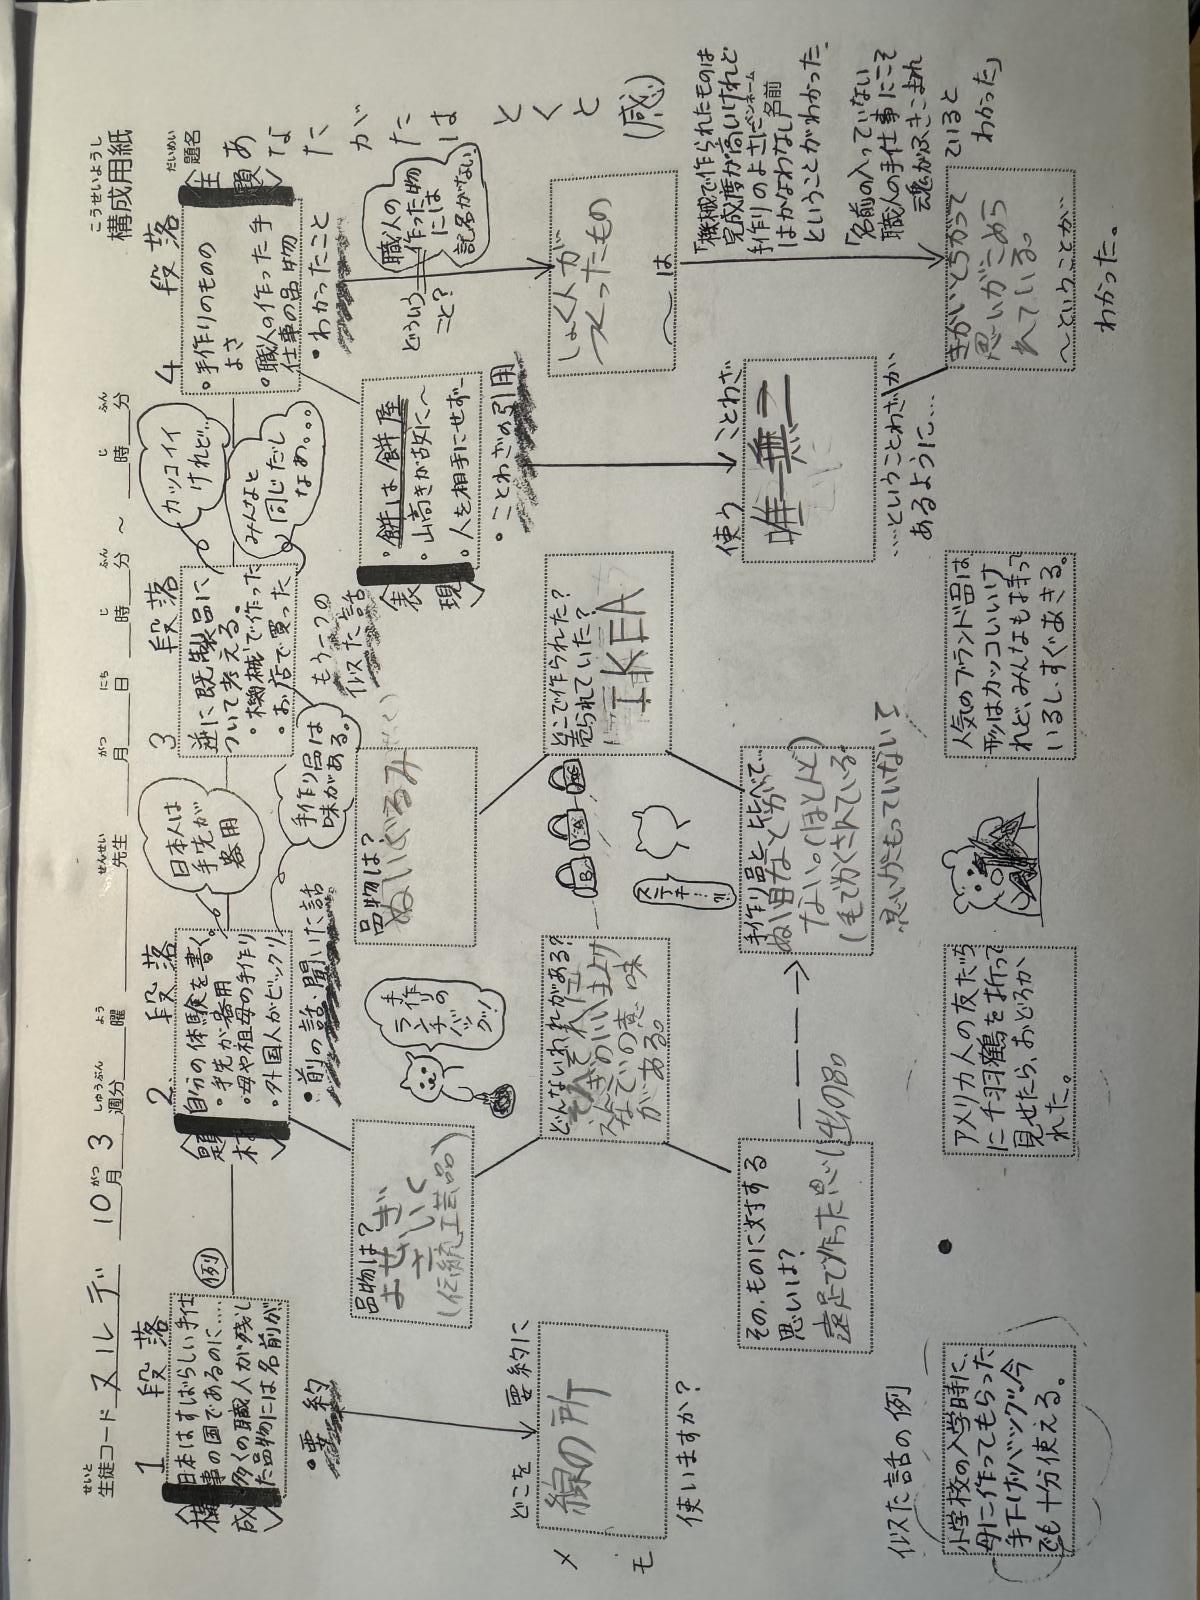 こうせいようし
構成用紙
せいと
生徒コード ヌレデ 10月 3週分 曜 先生 月 日 時 分 ～ 時 分
がつ しゅうぶん よう せんせい がつ にち じ ふん じ ふん
1 段落
〈構成〉
日本はすばらしい手仕
事の国であるのに……
多くの職人が残し
た品物には名前が
例
・要約
どこを要約に
使いますか？
メモ
線の所
2. 段落
〈題材〉
自分の体験を書く。
・手先が器用
・母や祖母の手作り
・外国人がビックリ
日本人は
手先が
器用
手作り品は
味がある。
・前の話・聞いた話
品物は？
よせぎ
ざいく
(伝統工芸品)
手作りの
ランチ
バッグ！
どんないわれがある？
その、ものに対する
思いは？
遠足で作った思い出
3 段落
逆に既製品に
ついて考える。
・機械で作った
・お店で買った
カッコイイ
けれど…
みんなと
同じだし
なぁ。。。
もう一つの
似た話
品物は？
ぬいぐるみ
どこで作られた？
売られていた？
IKEA
ステキ…?!
手作り品と比べて…
ぬい目なくて分
ない。(ほとんど)
(毛でかくされている)
思いがもっていなくて
4 段落
だいめい
題名
〈主題〉
あなたがたはとくと(感)
・手作りのもの
よさ
・職人の作った手
仕事の品物
・わかったこと
どういう
こと？
職人の
作った物
には
記名がない
しょく人が
つくったもの
～は
「機械で作られたものは
完成度が高いけれど
手作りのよさにはかなわない」
ということがわかった。
ペンネーム
名前
「名前の入っていない
職人の手仕事にこそ
魂がふきこまれ
ていると
わかった」
きかいとちがって
思いがこめら
れている。
～ということが
わかった。
〈表現〉
・餅は餅屋
・山高きが故に～
・人を相手にせず…
・ことわざの引用
使うことわざ
唯一無二
……ということわざが
あるように…
似た話の例
小学校の入学時に、
母に作ってもらった
手下げバッグ。今
でも十分使える。
アメリカ人の友だち
に千羽鶴を折って
見せたら、おどろか
れた。
人気のブランド品は
形はカッコいいけ
れど、みんなも持って
いるし、すぐあきる。